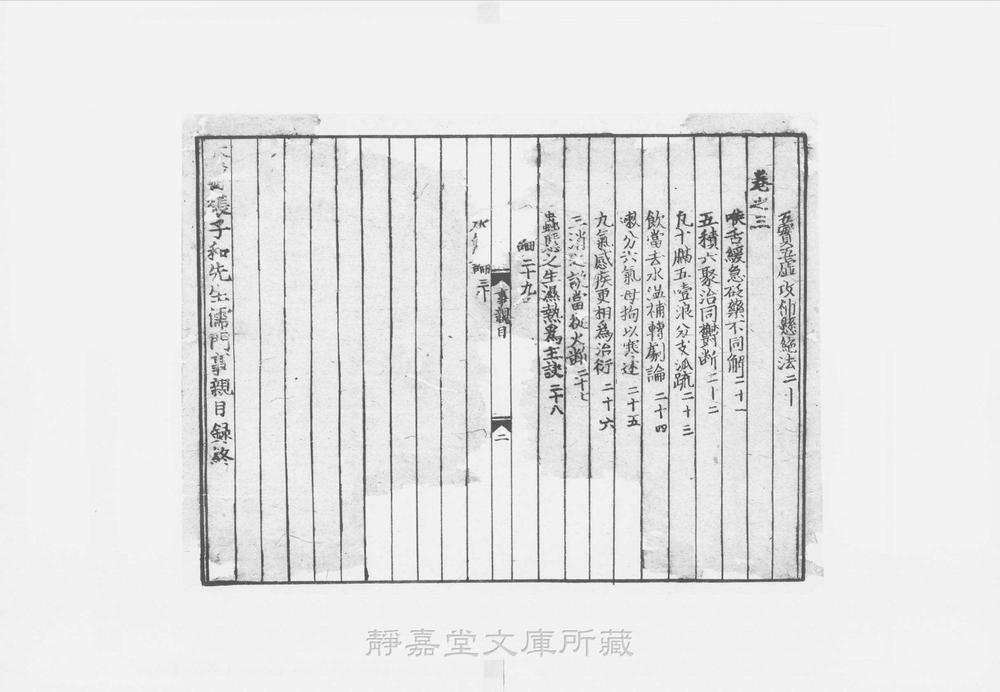 五實五虛攻補懸絶法二十
卷之三
喉舌緩急砭藥不同解二十一
五積六聚治同鬱斷二十二
斥十膈五噎浪分支派疏二十三
飲當去水溫補轉劇論二十四
嗽分六氣毋拘以寒述二十五
九氣感疾更相為治衍二十六
三消之說當從火斷二十七
蟲䘌之生濕熱為主訣二十八
二十九
事親目
二
水
三十
張子和先生濡門事親目録終
靜嘉堂文庫所藏